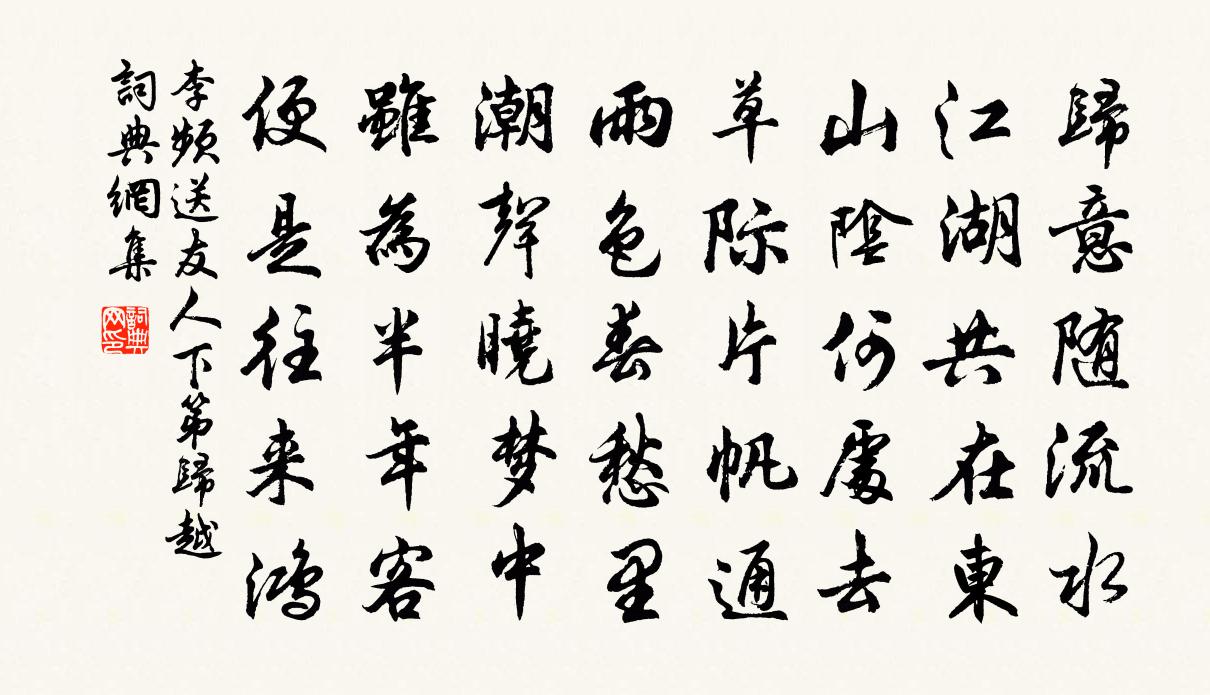 歸意随流水
江湖共在東
山陰何處去
草际片帆通
雨色春愁里
潮聲曉梦中
雖為半年客
便是往来鸿
李頻送友人下第歸越
詞典網集
詞典网印